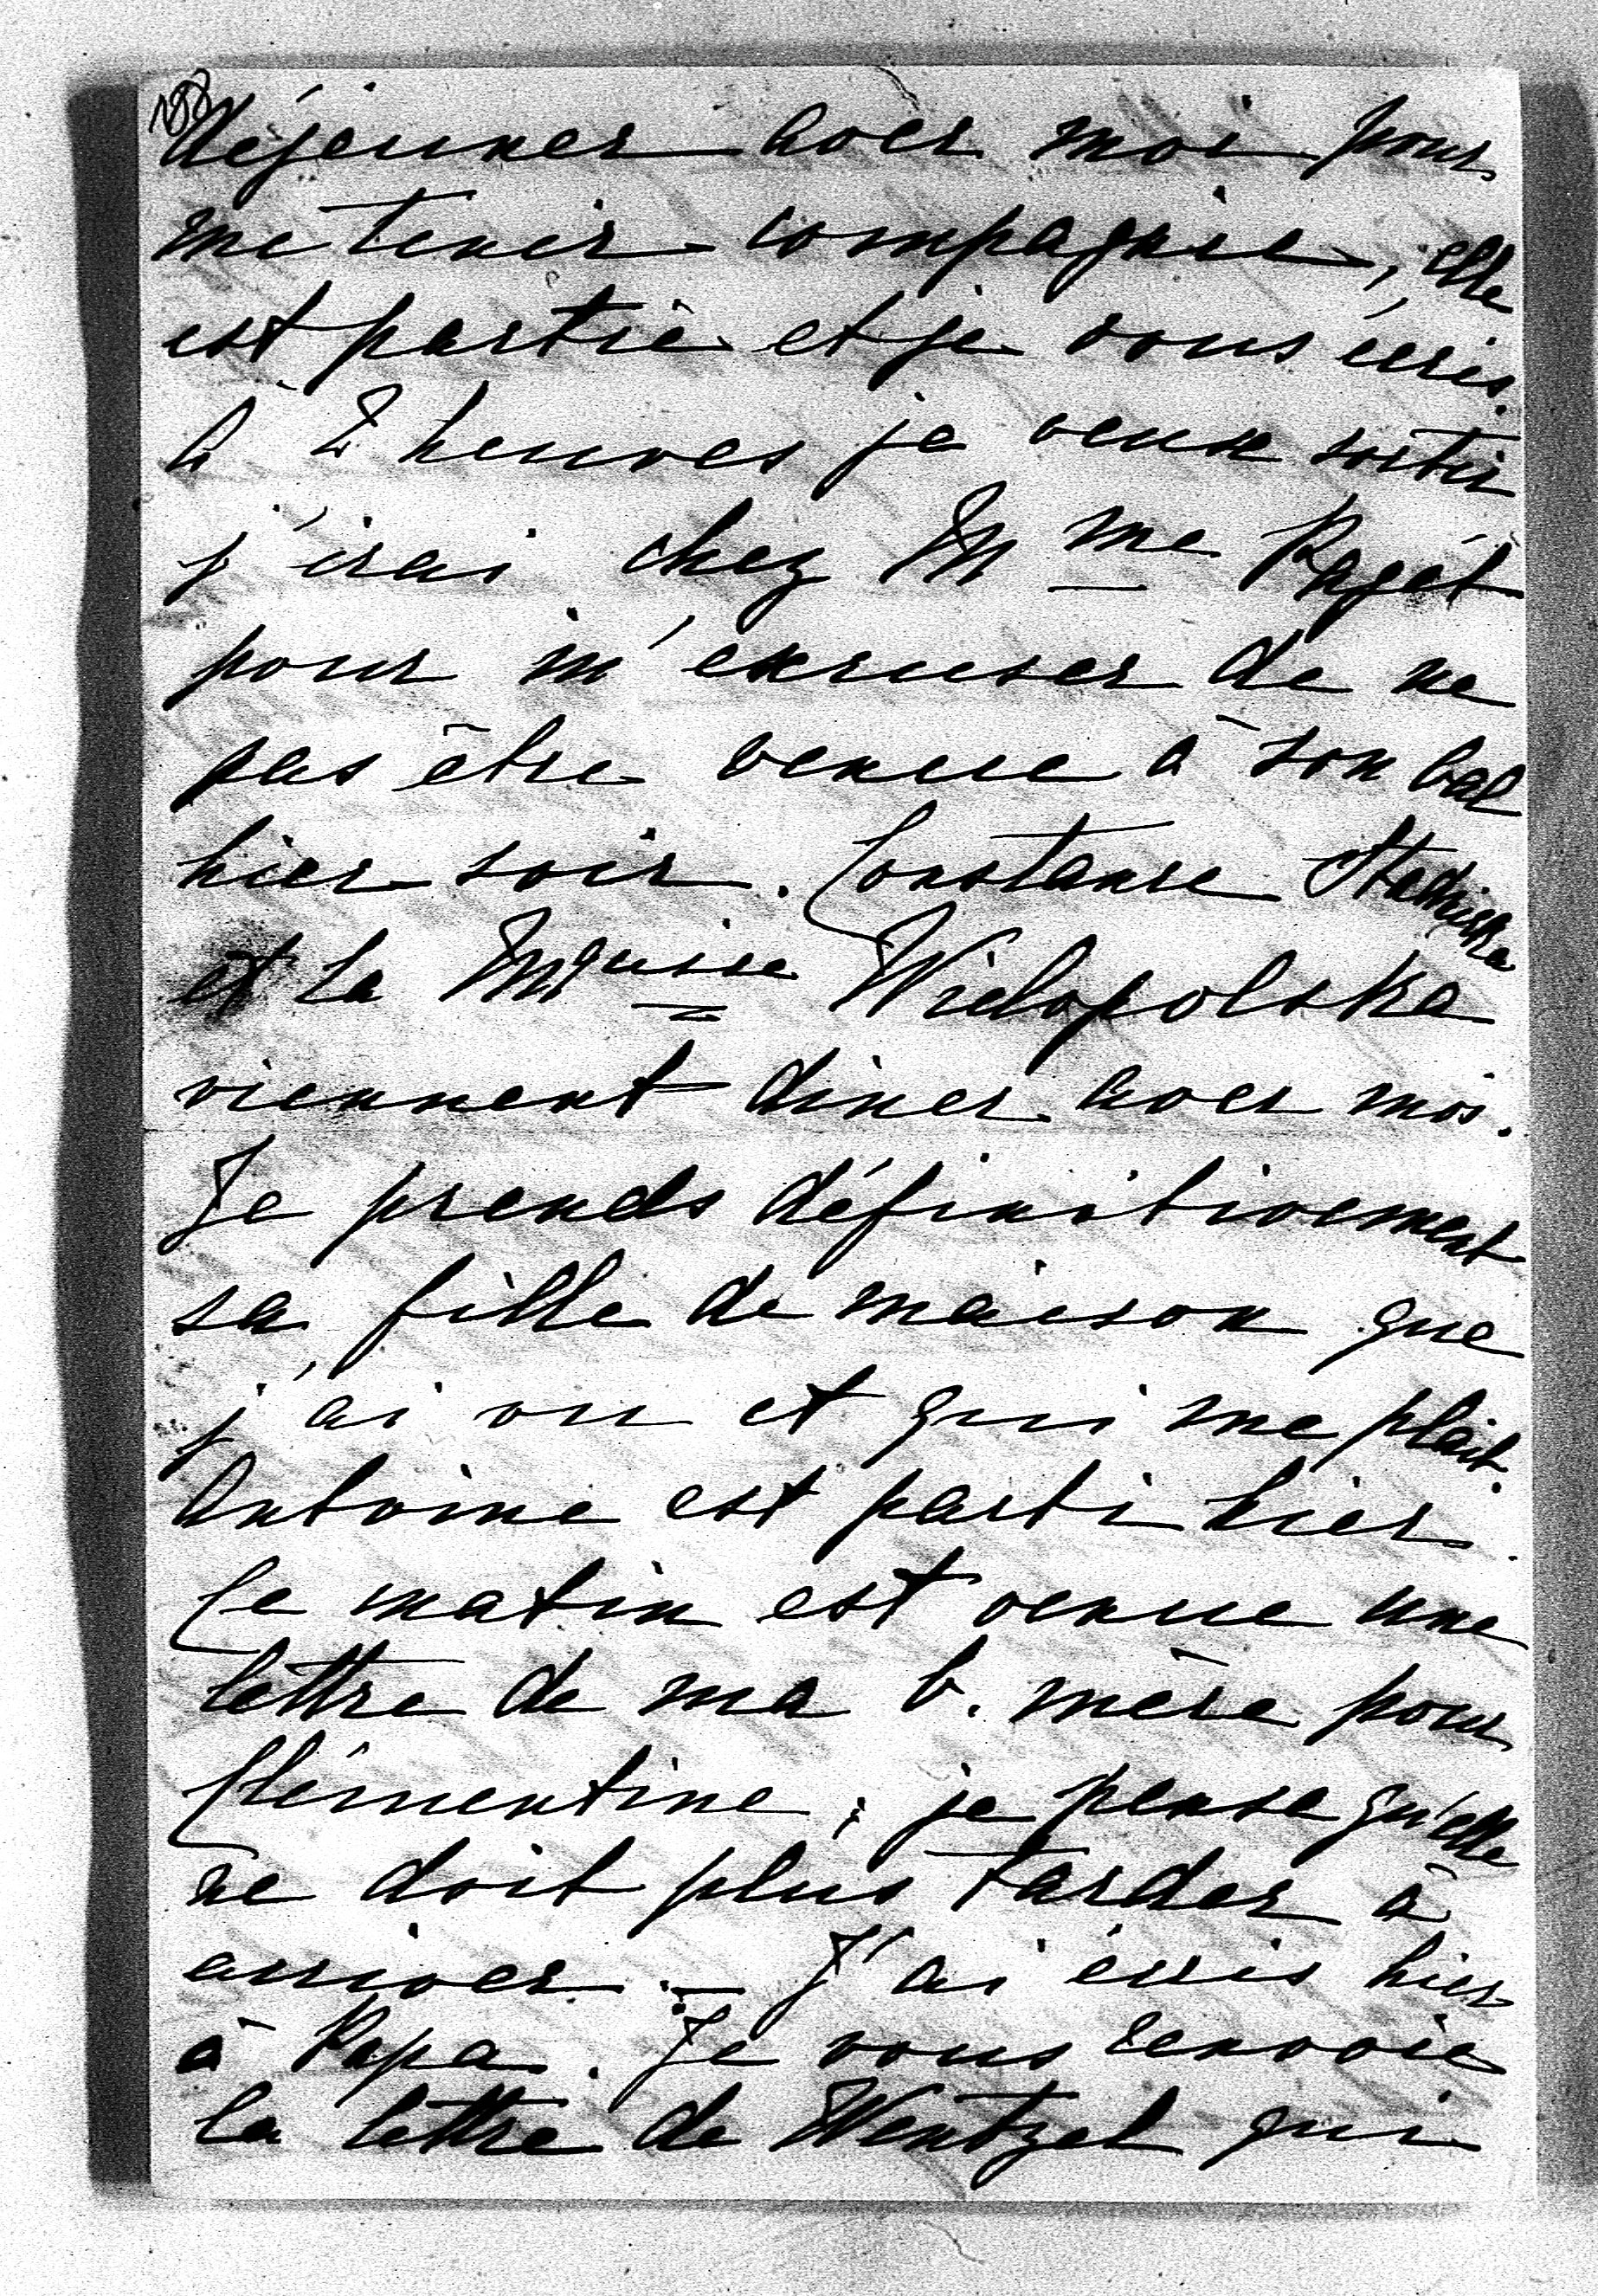 déjeuner avec moi pour
me tenir compagnie, elle
est partie et je vous écris.
à 2 heures je veux sortir
j'irai chez Mme Paget
pour m'excuser de ne
pas être venue à son bal
hier soir. Constance
et la Mquise Wielopolska
viennent diner avec moi.
Je prends définitivement
sa fille de maison que
j'ai vu et qui me plait.
Antoine est parti hier.
Ce matin est venue une
lettre de ma b. mère pour
Clémentine, je pense qu'elle
ne doit plus tarder à
arriver. – J'ai écris hier
à Papa. Je vous renvoie
la lettre de Wentzel qui